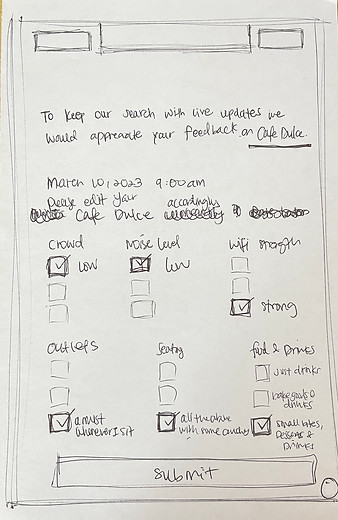 To keep our search with live updates we
would appreciate your feedback on Cafe Dulce.
March 10, 2023 9:00am
Please edit your accordingly
Cafe Dulce
Crowd Noise level Wifi strength
Low Low
strong
Outlets Seating food & Drinks
Just drinks
drinks
almost
wherever I sit
all the above
with some couches
small bites,
Desserts &
Drinks
submit